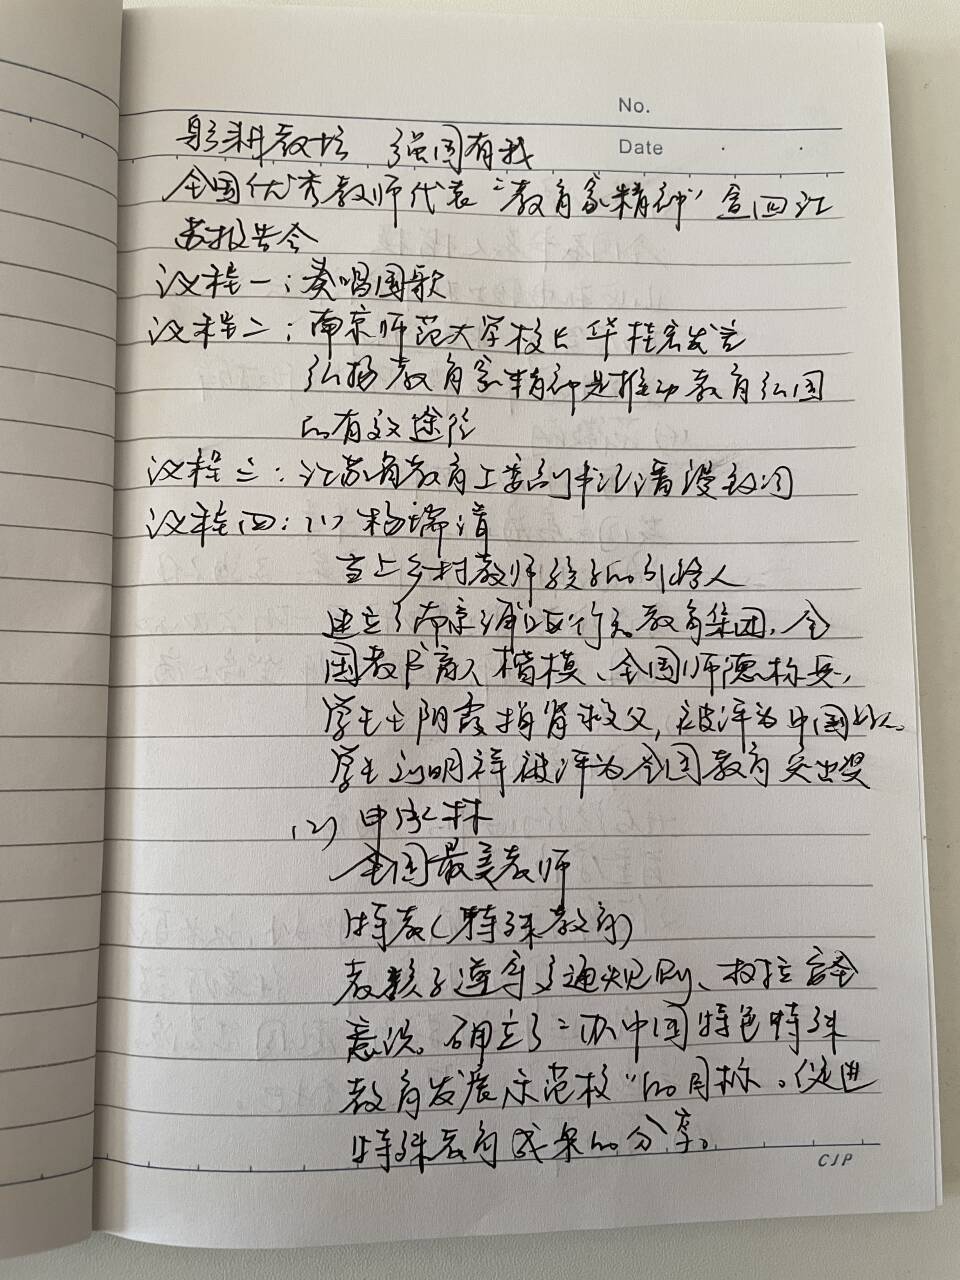 No.
Date
躬耕教坛 强国有我
全国优秀教师代表"教育家精神"宣回江
苏报告会
议程一:奏唱国歌
议程二:南京师范大学校长华桂宏发言
弘扬教育家精神是推动教育强国
的有效途径
议程三:江苏省教育工委副书记潘漫致词
议程四:(1)杨瑞清
当上乡村教师孩子的引路人
建立了南京浦口区行知教育集团,全
国教书育人楷模、全国师德标兵,
学生王阴霞捐肾救父,被评为中国好人。
学生刘明祥被评为全国教育突出奖
(2)申承林
全国最美教师
特教(特殊教育)
教孩子遵守交通规则、校拉安全
意识。确立了"办中国特色特殊
教育发展示范校"的目标。促进
特殊教育成果的分享。
CJP